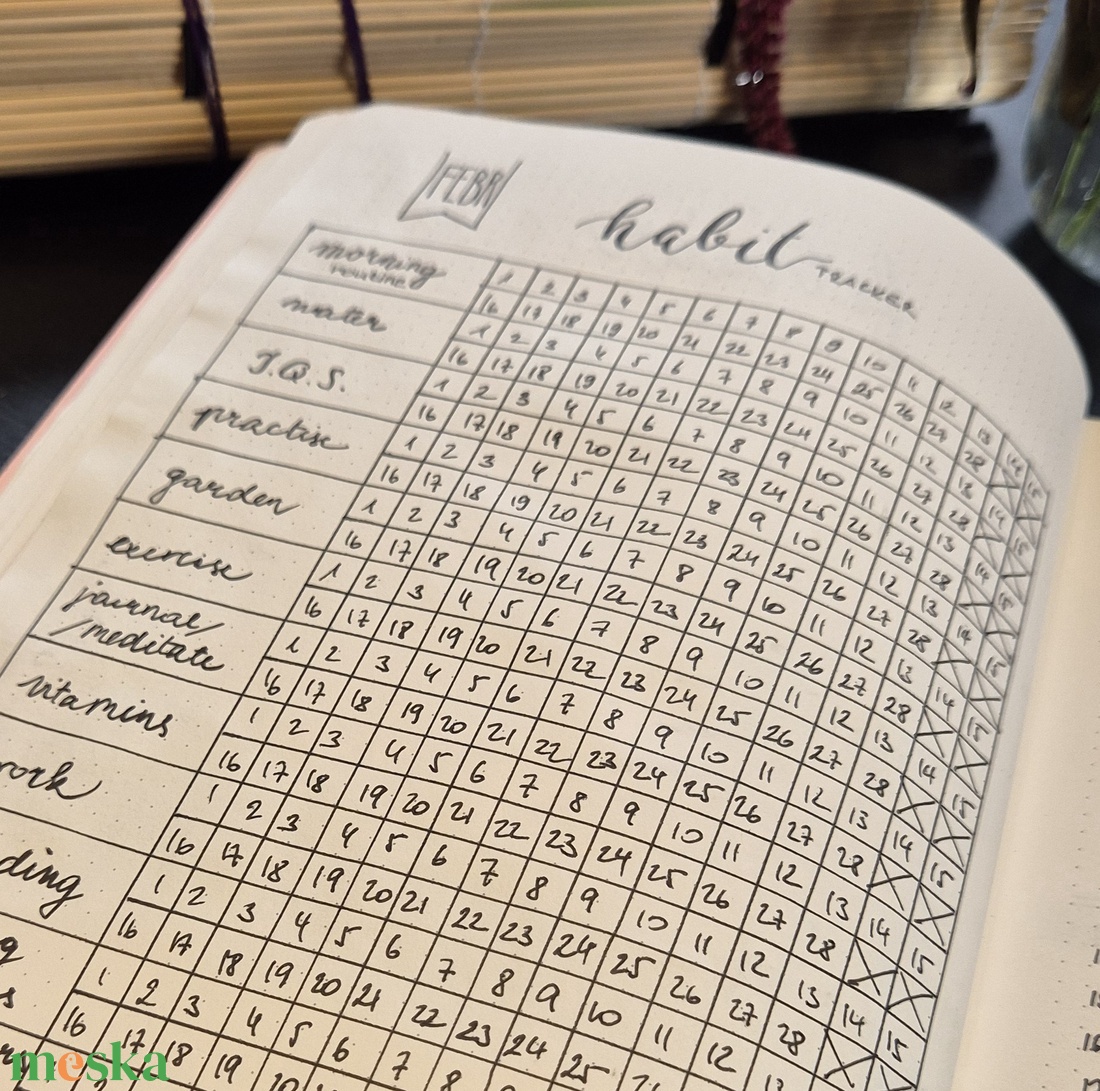 FEBR
habit TRACKER
morning routine
1 2 3 4 5 6 7 8 9 10 11 12 13 14 15
16 17 18 19 20 21 22 23 24 25 26 27 28
water
1 2 3 4 5 6 7 8 9 10 11 12 13 14 15
16 17 18 19 20 21 22 23 24 25 26 27 28
J.Q.S.
1 2 3 4 5 6 7 8 9 10 11 12 13 14 15
16 17 18 19 20 21 22 23 24 25 26 27 28
practise
1 2 3 4 5 6 7 8 9 10 11 12 13 14 15
16 17 18 19 20 21 22 23 24 25 26 27 28
garden
1 2 3 4 5 6 7 8 9 10 11 12 13 14 15
16 17 18 19 20 21 22 23 24 25 26 27 28
exercise
1 2 3 4 5 6 7 8 9 10 11 12 13 14 15
16 17 18 19 20 21 22 23 24 25 26 27 28
journal/
/meditate
1 2 3 4 5 6 7 8 9 10 11 12 13 14 15
16 17 18 19 20 21 22 23 24 25 26 27 28
vitamins
1 2 3 4 5 6 7 8 9 10 11 12 13 14 15
16 17 18 19 20 21 22 23 24 25 26 27 28
work
1 2 3 4 5 6 7 8 9 10 11 12 13 14 15
16 17 18 19 20 21 22 23 24 25 26 27 28
ding
1 2 3 4 5 6 7 8 9 10 11 12 13
16 17 18 19 20 21 22 23 24 25
1 2 3 4 5 6 7 8
16 17 18 19 20
meska